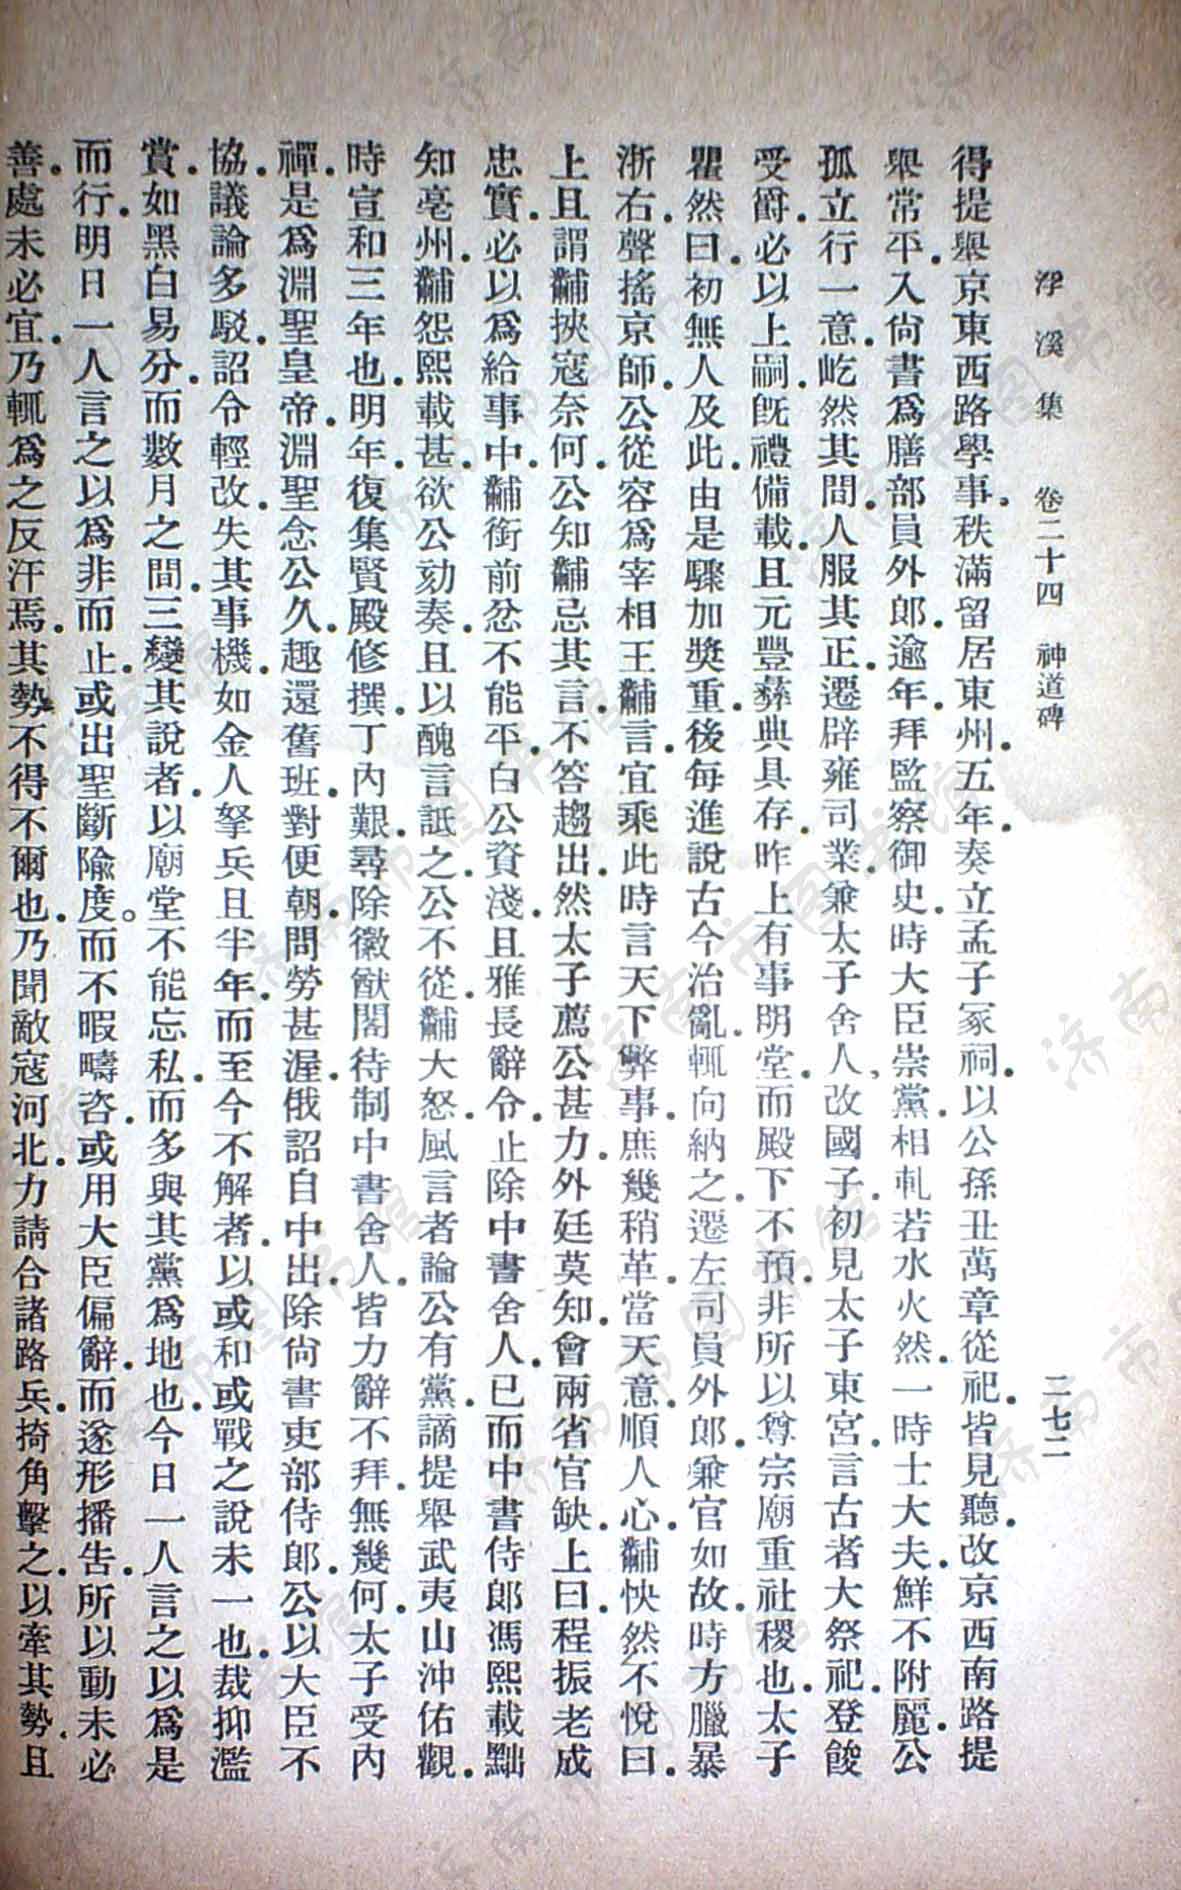 浮溪集 卷二十四 神道碑 二七二
得提舉京東西路學事。秩滿留居東州。五年。奏立孟子冢祠。以公孫丑萬章從祀。皆見聽。改京西南路提
舉常平。入尙書爲膳部員外郎。逾年。拜監察御史。時大臣崇黨。相軋若水火然。一時士大夫。鮮不附麗。公
孤立行一意。屹然其間。人服其正。遷辟雍司業。兼太子舍人、改國子。初見太子東宮。言古者大祭祀。登餕
受爵。必以上嗣。旣禮備載。且元豐彝典具存。昨上有事明堂。而殿下不預。非所以尊宗廟重社稷也。太子
瞿然曰。初無人及此。由是驟加獎重。後每進說古今治亂。輒向納之。遷左司員外郎。兼官如故。時方臘暴
浙右。聲搖京師。公從容爲宰相王黼言。宜乘此時言天下弊事。庶幾稍革。當天意。順人心。黼怏然不悅曰。
上且謂黼挾寇奈何。公知黼忌其言。不答趨出。然太子薦公甚力。外廷莫知。會兩省官缺。上曰。程振老成
忠實。必以爲給事中。黼銜前忿不能平。白公資淺。且雅長辭令。止除中書舍人。已而中書侍郎馮熙載黜
知亳州。黼怨熙載甚。欲公劾奏。且以醜言詆之。公不從。黼大怒。風言者論公有黨。謫提舉武夷山沖佑觀。
時宣和三年也。明年。復集賢殿修撰。丁內艱。尋除徽猷閣待制中書舍人。皆力辭不拜。無幾何。太子受內
禪。是爲淵聖皇帝。淵聖念公久。趣還舊班。對便朝。問勞甚渥。俄詔自中出。除尙書吏部侍郎。公以大臣不
協。議論多駁。詔令輕改。失其事機。如金人孥兵且半年。而至今不解者。以或和或戰之說未一也。裁抑濫
賞。如黑白易分。而數月之間。三變其說者。以廟堂不能忘私。而多與其黨爲地也。今日一人言之以爲是
而行。明日一人言之以爲非而止。或出聖斷隃度。而不暇疇咨。或用大臣偏辭。而遂形播告。所以動未必
善。處未必宜。乃輒爲之反汗焉。其勢不得不爾也。乃聞敵寇河北。力請合諸路兵。掎角擊之。以牽其勢。且